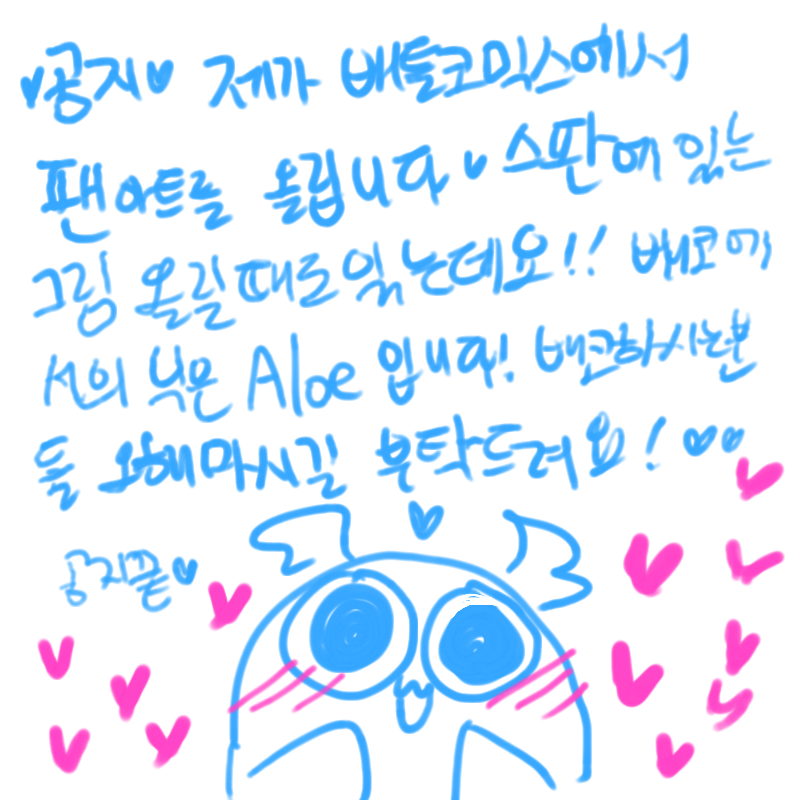 ♥공지♥ 제가 배틀코믹스에서
팬아트를 올립니다♥ 스판에 있는
그림 올릴때도있는데요!! 배코에
서의 닉은 Aloe 입니다! 배코하시는분
들 오해마시길 부탁드려요! ♥♥♥
공지끝♥